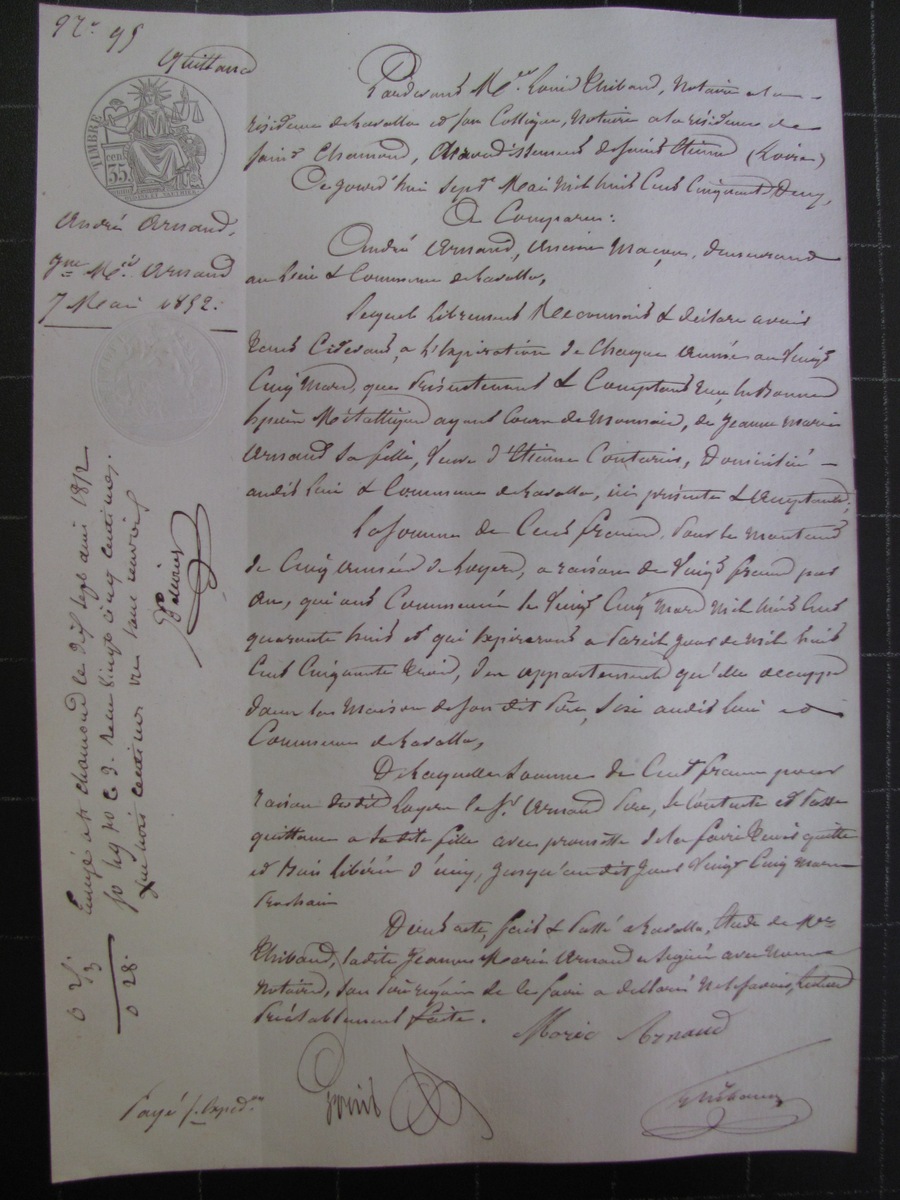 N.º 95
Quittance
TIMBRE
35 cen.
André Arnaud,
à Me. Arnaud
7 Mai 1852.
Pardevant Me. Louis Thibaud, Notaire à la
résidence de Lavalla et son Collègue, Notaire à la résidence de
Saint Chamond, Arrondissement de Saint Etienne (Loire)
Ce Jourd'hui sept Mai Mil huit Cent Cinquante Deux,
A Comparu:
André Arnaud, Ancien Maçon, demeurant
au lieu & Commune de Lavalla,
Lequel librement Reconnait & déclare avoir
à l'Expiration de Chaque année au Vingt
Cinq Mars, que Présentement & Comptant en bonnes
Espèces Métalliques ayant Cours de Monnaie, de Jeanne Marie
Arnaud sa fille, Veuve d'Etienne Couturier, Domiciliée
audit lieu & Commune de Lavalla, ici présente & acceptante,
La Somme de Cent francs, Pour le Montant
de Cinq Années de Loyers, à raison de Vingt francs par
An, qui ont Commencé le Vingt Cinq Mars Mil huit Cent
quarante huit et qui Expireront à Pareil Jour de Mil huit
Cent Cinquante trois, d'un appartement qu'elle occuppe
dans la Maison de son dit Père, Sise audit lieu et
Commune de Lavalla,
De Laquelle Somme de Cent francs pour
raison dudit Loyer le Sr. Arnaud Père, se Contente et Passe
quittance à sadite fille avec promesse de la faire tenir quitte
et libérée d'icy, Jusqu'audit Jour Vingt Cinq Mars
Prochain
Dont acte, fait & Passé à Lavalla, Etude de Me.
Thibaud, ladite Jeanne Marie Arnaud a Signé avec Nous
Notaires, son Père requis de le faire a déclaré Ne le savoir, Lecture
Préalablement faite.
Marie Arnaud
Thibaud
Enregé à St chamond le dix sept mai 1852
fo 49 Vo C 3. reçu vingt cinq centimes,
plus trois centimes
0 25.
3
0 28.
Payé l'Expedon